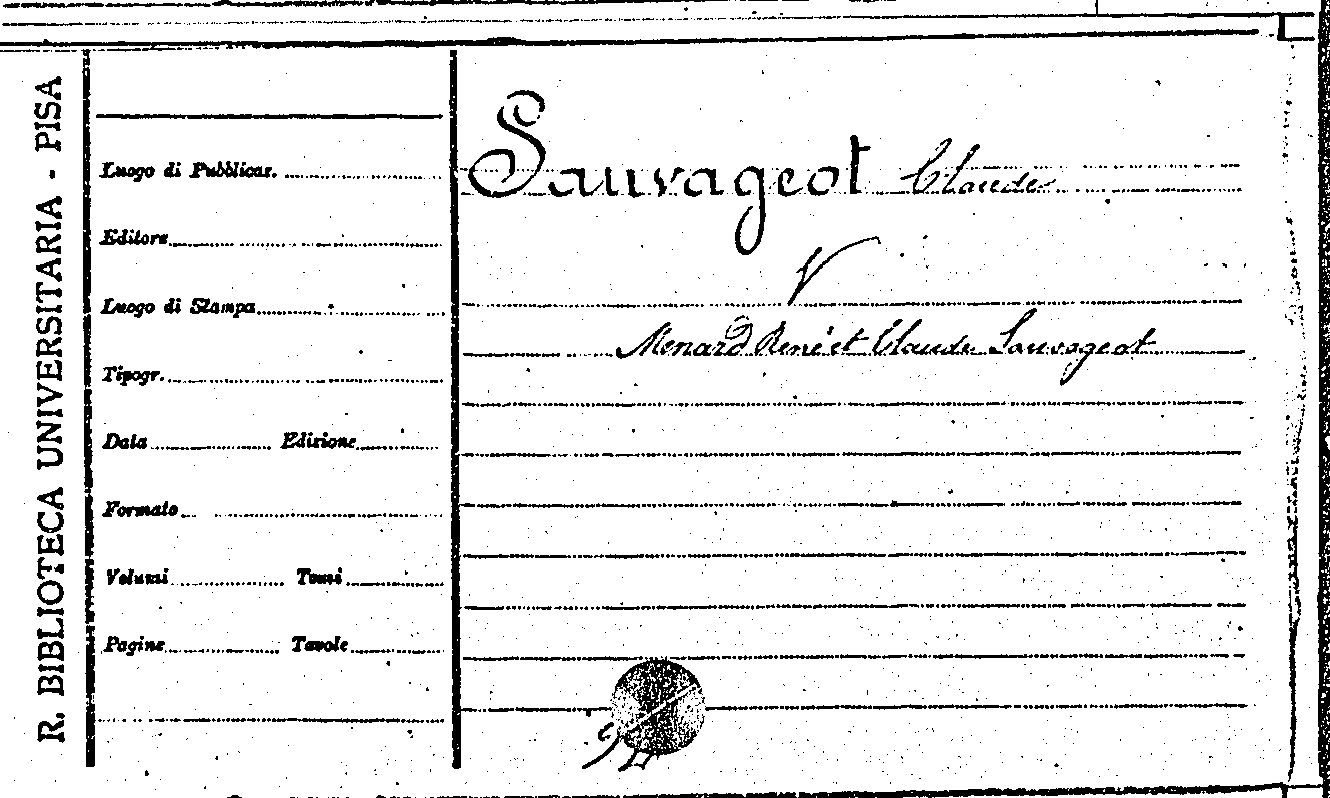 R. BIBLIOTECA UNIVERSITARIA - PISA
Luogo di Pubblicaz.
Editore
Luogo di Stampa
Tipogr.
Data Edizione
Formato
Volumi Tomi
Pagine Tavole
Sauvageot Claude
V
Menard René et Claude Sauvageot